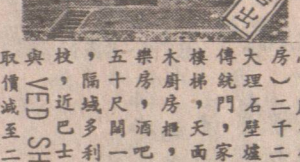 房）二千二
大理石壁爐
傳統門，家
樓梯，天面
木廚房柜，
樂房，酒吧
五十尺闊一
，隔域多利
校，近巴士
與VED SH
取價減至二